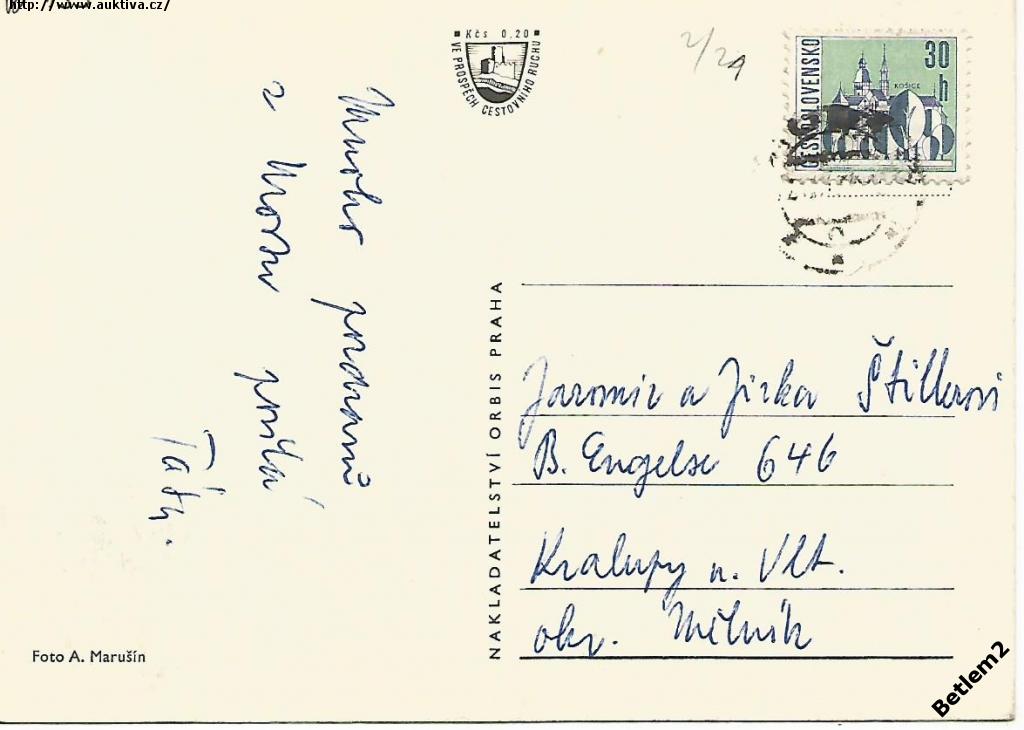 http://www.auktiva.cz/
Kčs 0,20
VE PROSPĚCH CESTOVNÍHO RUCHU
2/24
ČESKOSLOVENSKO
30 h
KOŠICE
Mnoho pozdravů
z posílá
Táta.
NAKLADATELSTVÍ ORBIS PRAHA
Jaromír a Jirka
B. Engelse 646
Kralupy n. Vlt.
okr. Mělník
Foto A. Marušín
Betlem2